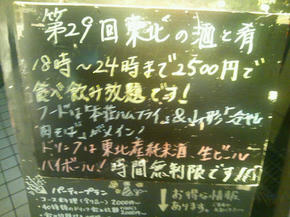 第29回東北の酒と肴
18時〜24時まで2500円で
食べ飲み放題です!
フードは「本荘ハムフライ」&山形「谷地
肉そば」がメイン!
ドリンクは東北産純米酒 生ビール
ハイボール! 時間無制限です!
パーティープラン
コース料理
お得な情報
あります。